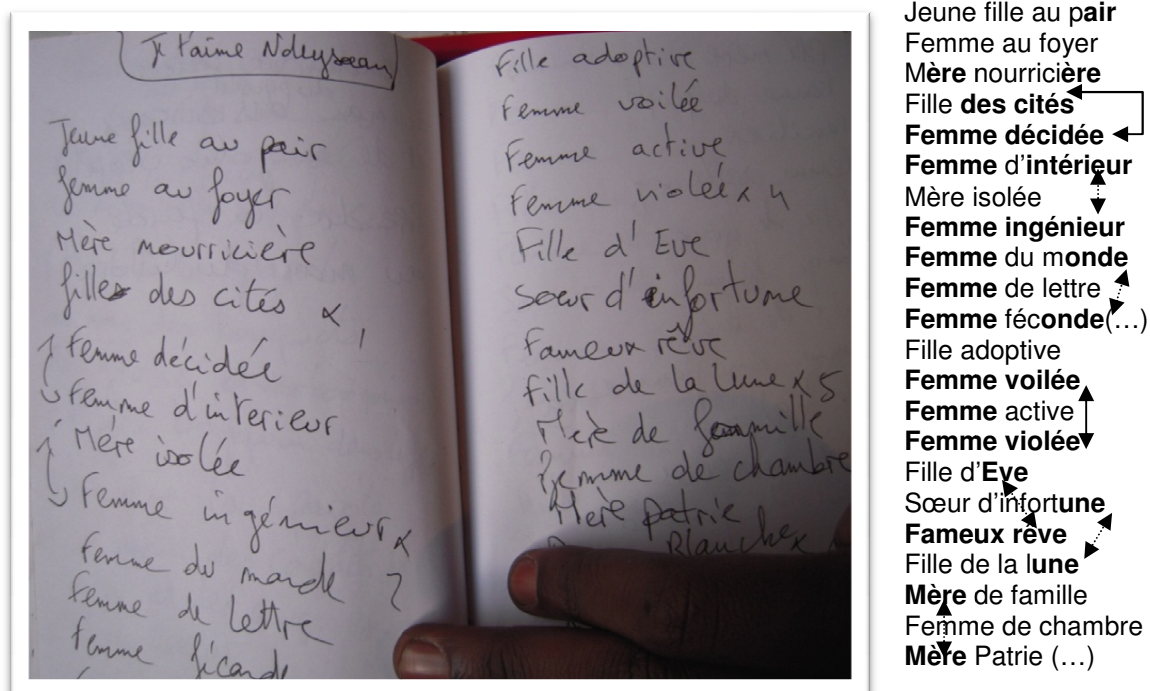 Je t'aime Ndeysaan
Jeune fille au pair
femme au foyer
Mère nourricière
filles des cités x 1
Femme décidée
Femme d'interieur
Mère isolée
Femme ingénieur x
Femme du monde 2
Femme de lettre
Femme féconde
Fille adoptive
Femme voilée
Femme active
Femme violée x 4
Fille d'Eve
Sœur d'infortune
Fameux rêve
Fille de la lune x 5
Mère de famille
Femme de chambre
Mère patrie
Blanche x
Jeune fille au pair
Femme au foyer
Mère nourricière
Fille des cités
Femme décidée
Femme d'intérieur
Mère isolée
Femme ingénieur
Femme du monde
Femme de lettre
Femme féconde(…)
Fille adoptive
Femme voilée
Femme active
Femme violée
Fille d'Eve
Sœur d'infortune
Fameux rêve
Fille de la lune
Mère de famille
Femme de chambre
Mère Patrie (…)